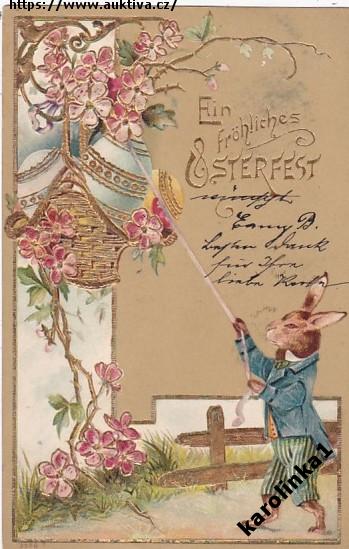 https://www.auktiva.cz/
Ein
fröhliches
OSTERFEST
wünscht
Besten Dank
für Ihre
liebe Karte
karolinka1